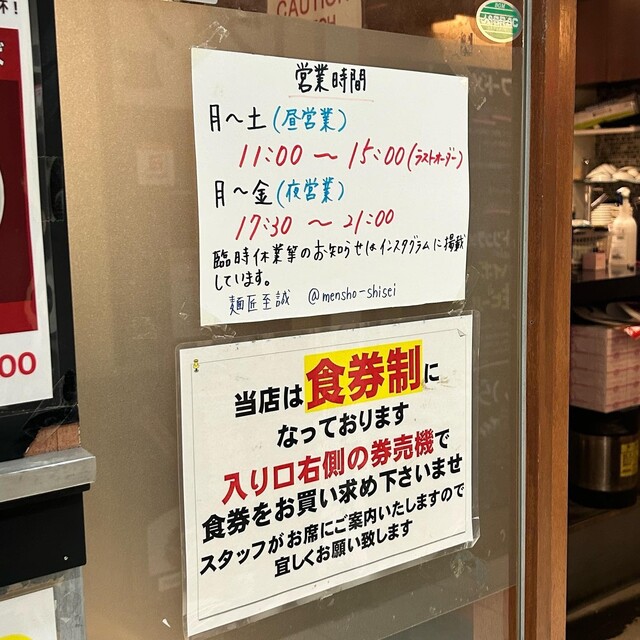 営業時間
月〜土(昼営業)
11:00 〜 15:00(ラストオーダー)
月〜金(夜営業)
17:30 〜 21:00
臨時休業等のお知らせはインスタグラムに掲載
しています。
麺匠至誠 @mensho-shisei
当店は食券制に
なっております
入り口右側の券売機で
食券をお買い求め下さいませ
スタッフがお席にご案内いたしますので
宜しくお願い致します
CAUTION